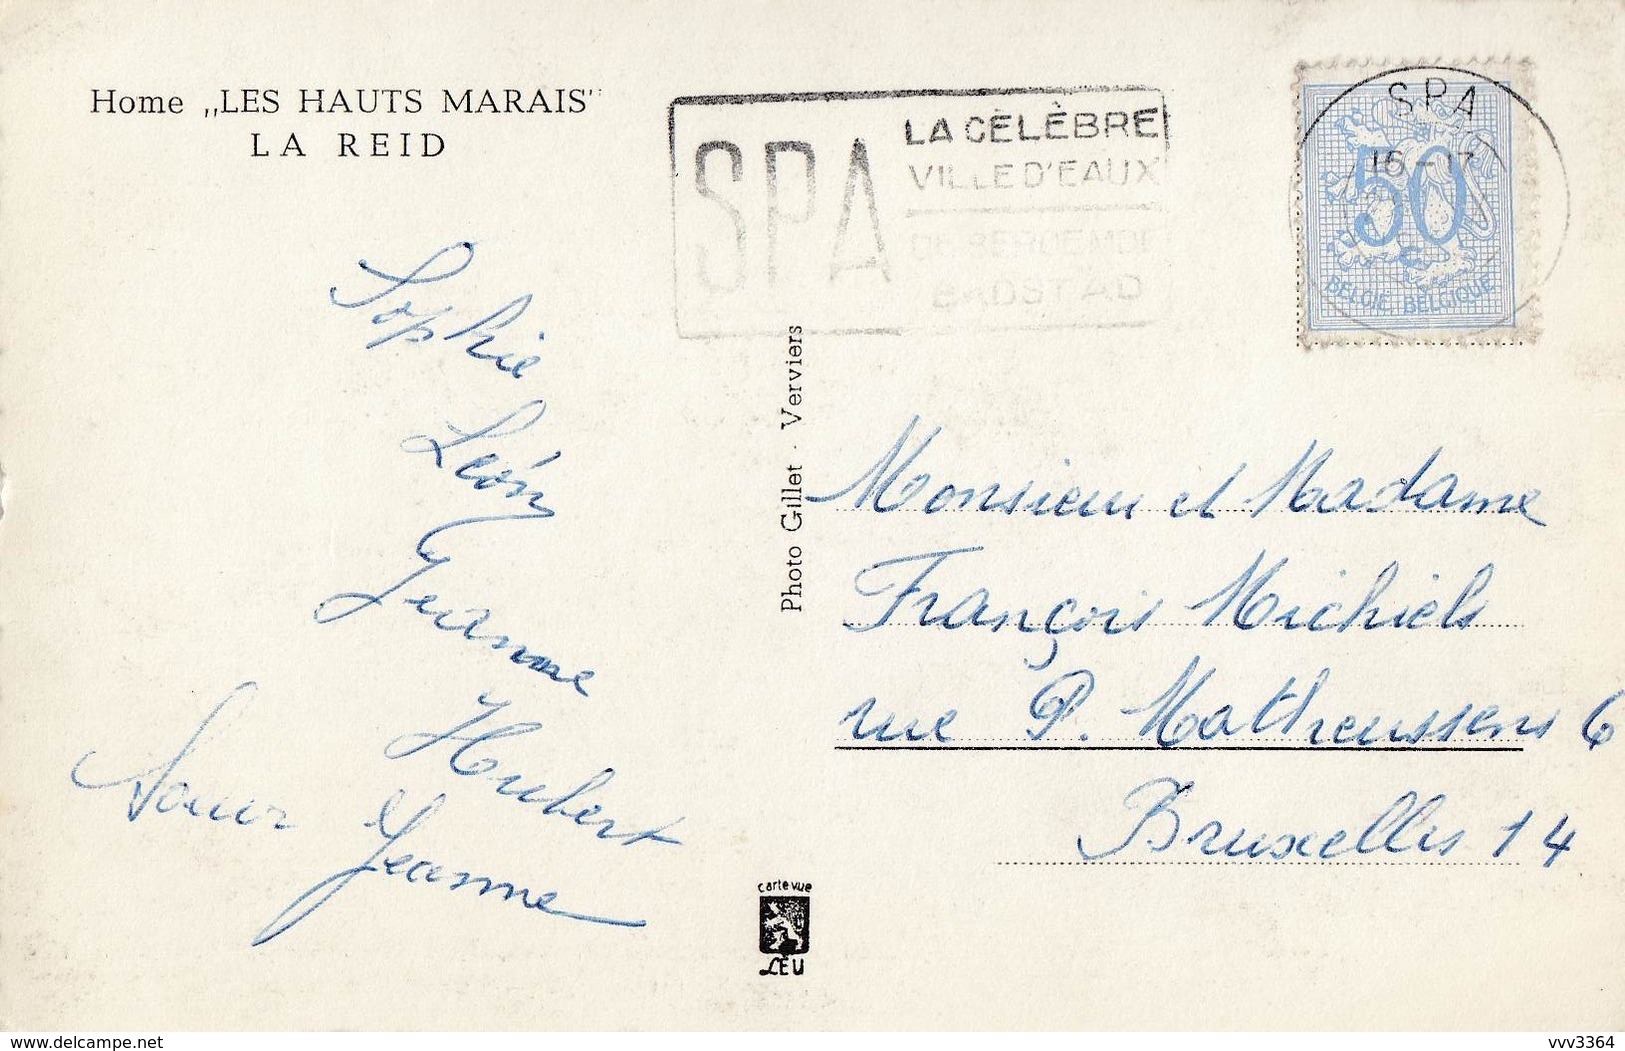 Home „LES HAUTS MARAIS"
LA REID
SPA
LA CÉLÈBRE
VILLE D'EAUX
DE BEROEMDE
BADSTAD
SPA
16-17
50
BELGIE BELGIQUE
Sophie
León
Jeanne
Hubert
Soeur Jeanne
Photo Gillet · Verviers
Monsieur et Madame
François Michiels
rue P. Matheussens 6
Bruxelles 14
carte vue
LEU
delcampe.net
vvv3364